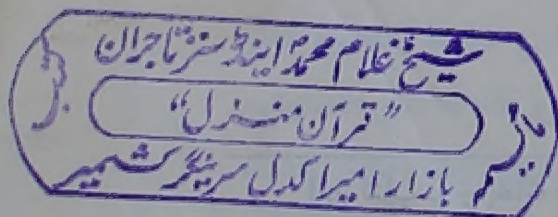 شیخ غلام محمدؐ اینڈ سنز تاجران
کتب
”قرآن منزل“
بازار امیرا کدل سرینگر کشمیر